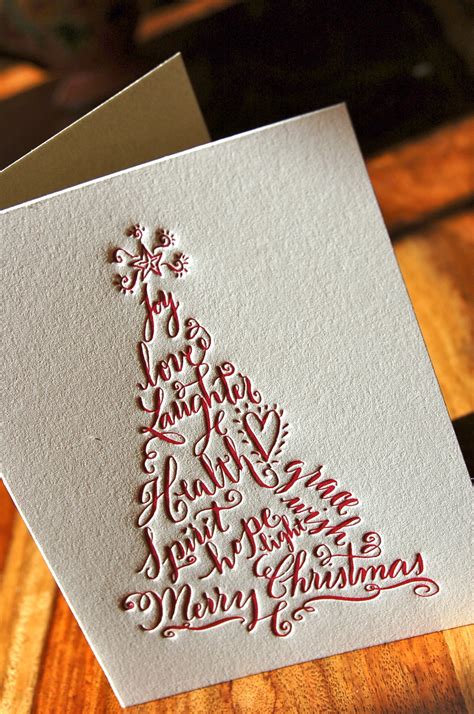 Joy
love
Laughter
Health
grace
Spirit hope light wish
Merry Christmas